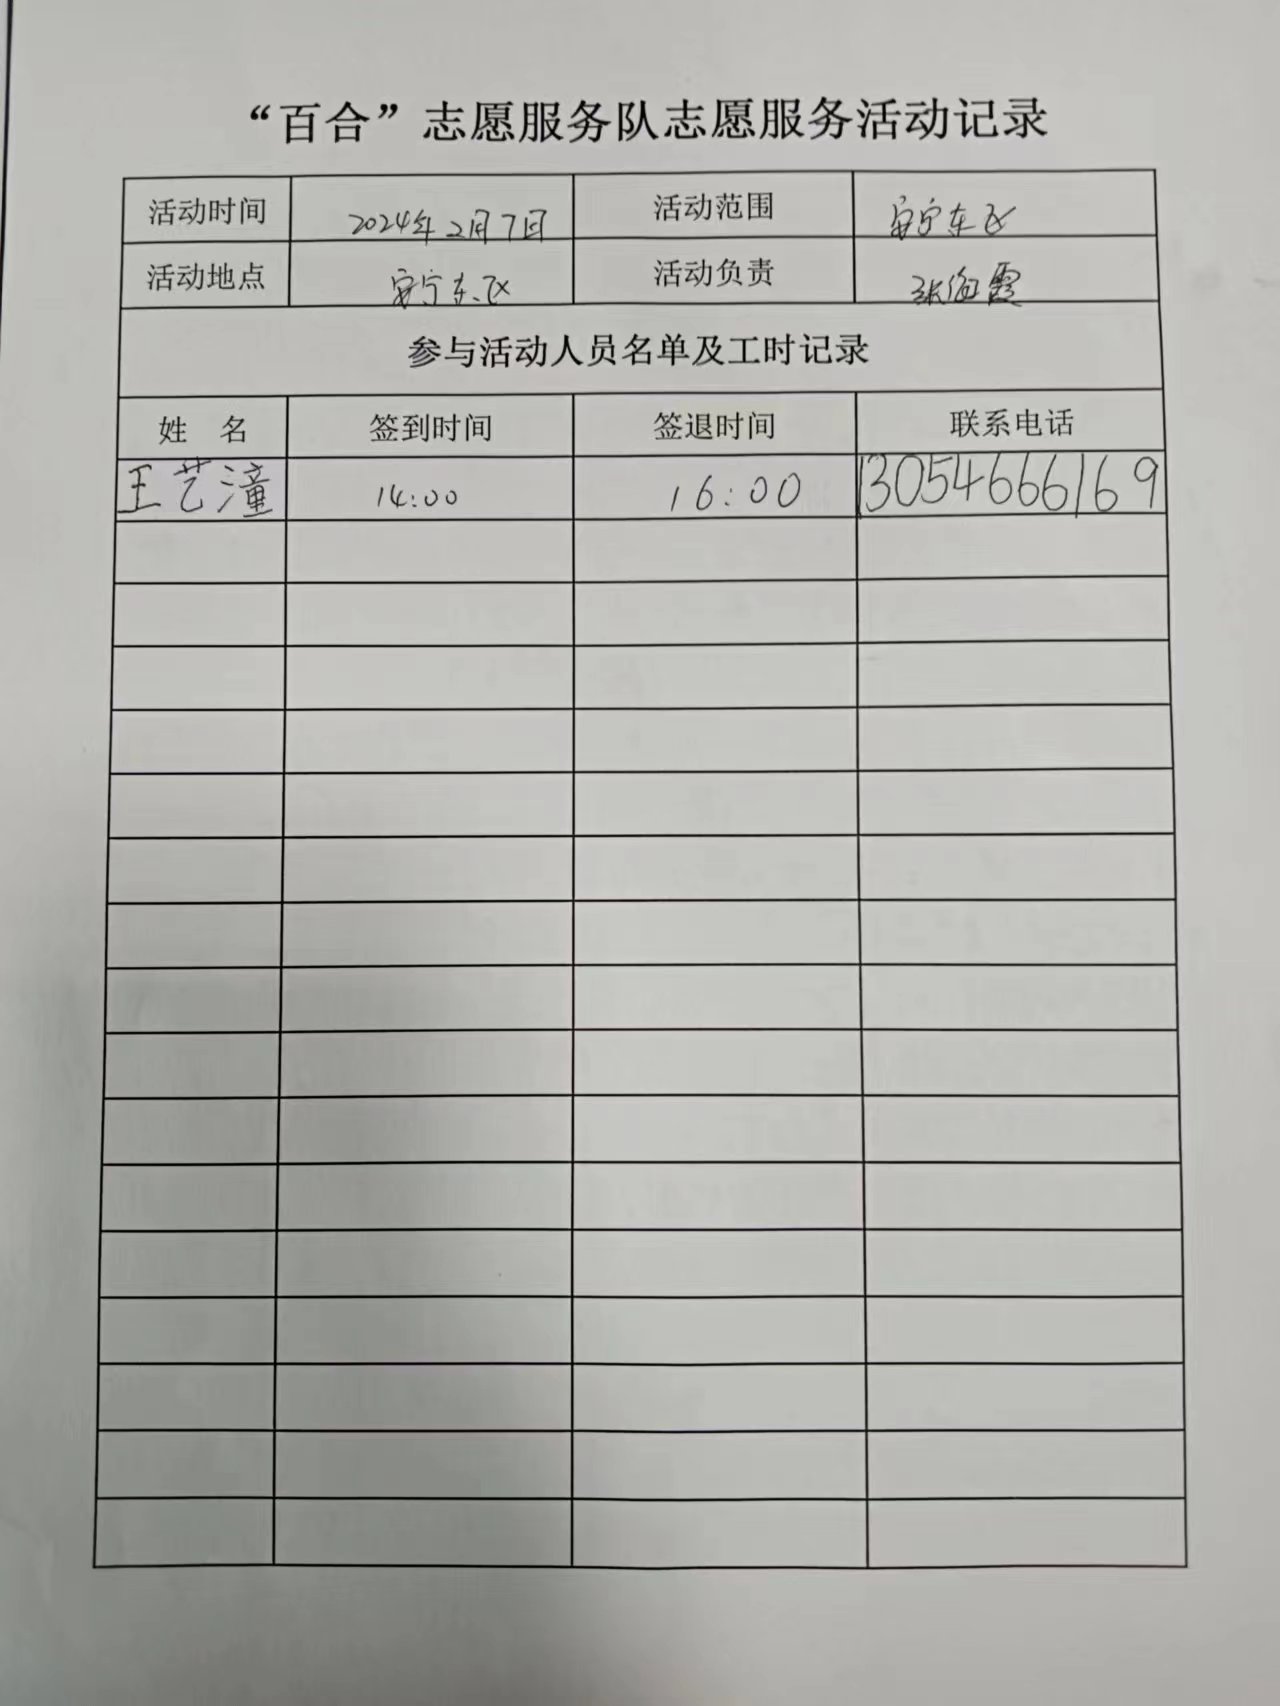 “百合”志愿服务队志愿服务活动记录
活动时间 2024年2月7日 活动范围 安宁东区
活动地点 安宁东区 活动负责 张海霞
参与活动人员名单及工时记录
姓 名 签到时间 签退时间 联系电话
王艺潼 14:00 16:00 13054666169